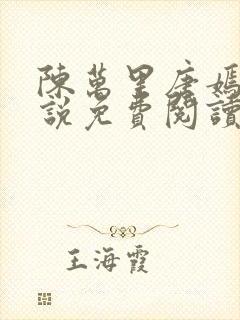 陳萬里唐嫣
說免費閱讀
王海霞